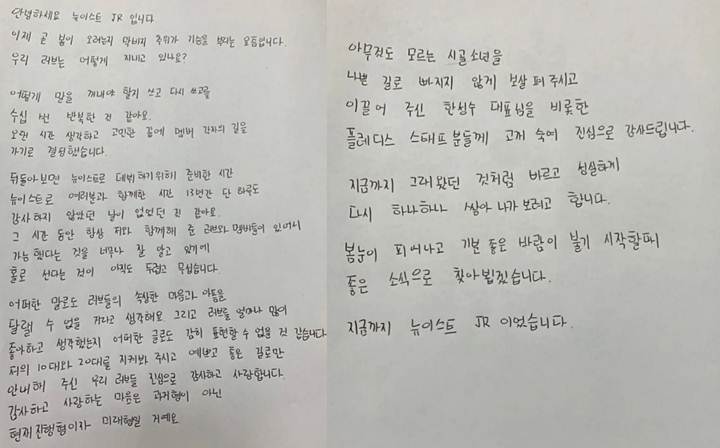 안녕하세요 뉴이스트 JR 입니다
이제 곧 봄이 오려는지 막바지 추위가 기승을 부리는 요즘입니다.
우리 러브는 어떻게 지내고 있나요?
어떻게 말을 꺼내야 할지 쓰고 다시 쓰고를
수십 번 반복한 것 같아요.
오랜 시간 생각하고 고민한 끝에 멤버 각자의 길을
가기로 결정했습니다.
뒤돌아보면 뉴이스트로 데뷔하기위해 준비한 시간
뉴이스트로 여러분과 함께한 시간 13년간 단 하루도
감사하지 않았던 날이 없었던 것 같아요.
그 시간 동안 항상 저와 함께해 준 러브와 멤버들이 있어서
가능했다는 것을 너무나 잘 알고 있기에
홀로 선다는 것이 아직도 두렵고 무섭습니다
어떠한 말로도 러브들의 속상한 마음과 아픔을
달랠 수 없을 거라고 생각해요 그리고 러브를 얼마나 많이
좋아하고 생각했는지 어떠한 글로도 감히 표현할 수 없을 것 같습니다
저의 10대와 20대를 지켜봐 주시고 예쁘고 좋은 길로만
안내해 주신 우리 러브들 진심으로 감사하고 사랑합니다.
감사하고 사랑하는 마음은 과거형이 아닌
현재진행형이자 미래형일 거예요
아무것도 모르는 시골소년을
나쁜 길로 빠지지 않게 보살펴 주시고
이끌어 주신 한성수 대표님을 비롯한
플레디스 스태프 분들께 고개 숙여 진심으로 감사드립니다.
지금까지 그래왔던 것처럼 바르고 성실하게
다시 하나하나 쌓아 나가 보려고 합니다.
봄눈이 피어나고 기분 좋은 바람이 불기 시작할때
좋은 소식으로 찾아뵙겠습니다.
지금까지 뉴이스트 JR 이었습니다.